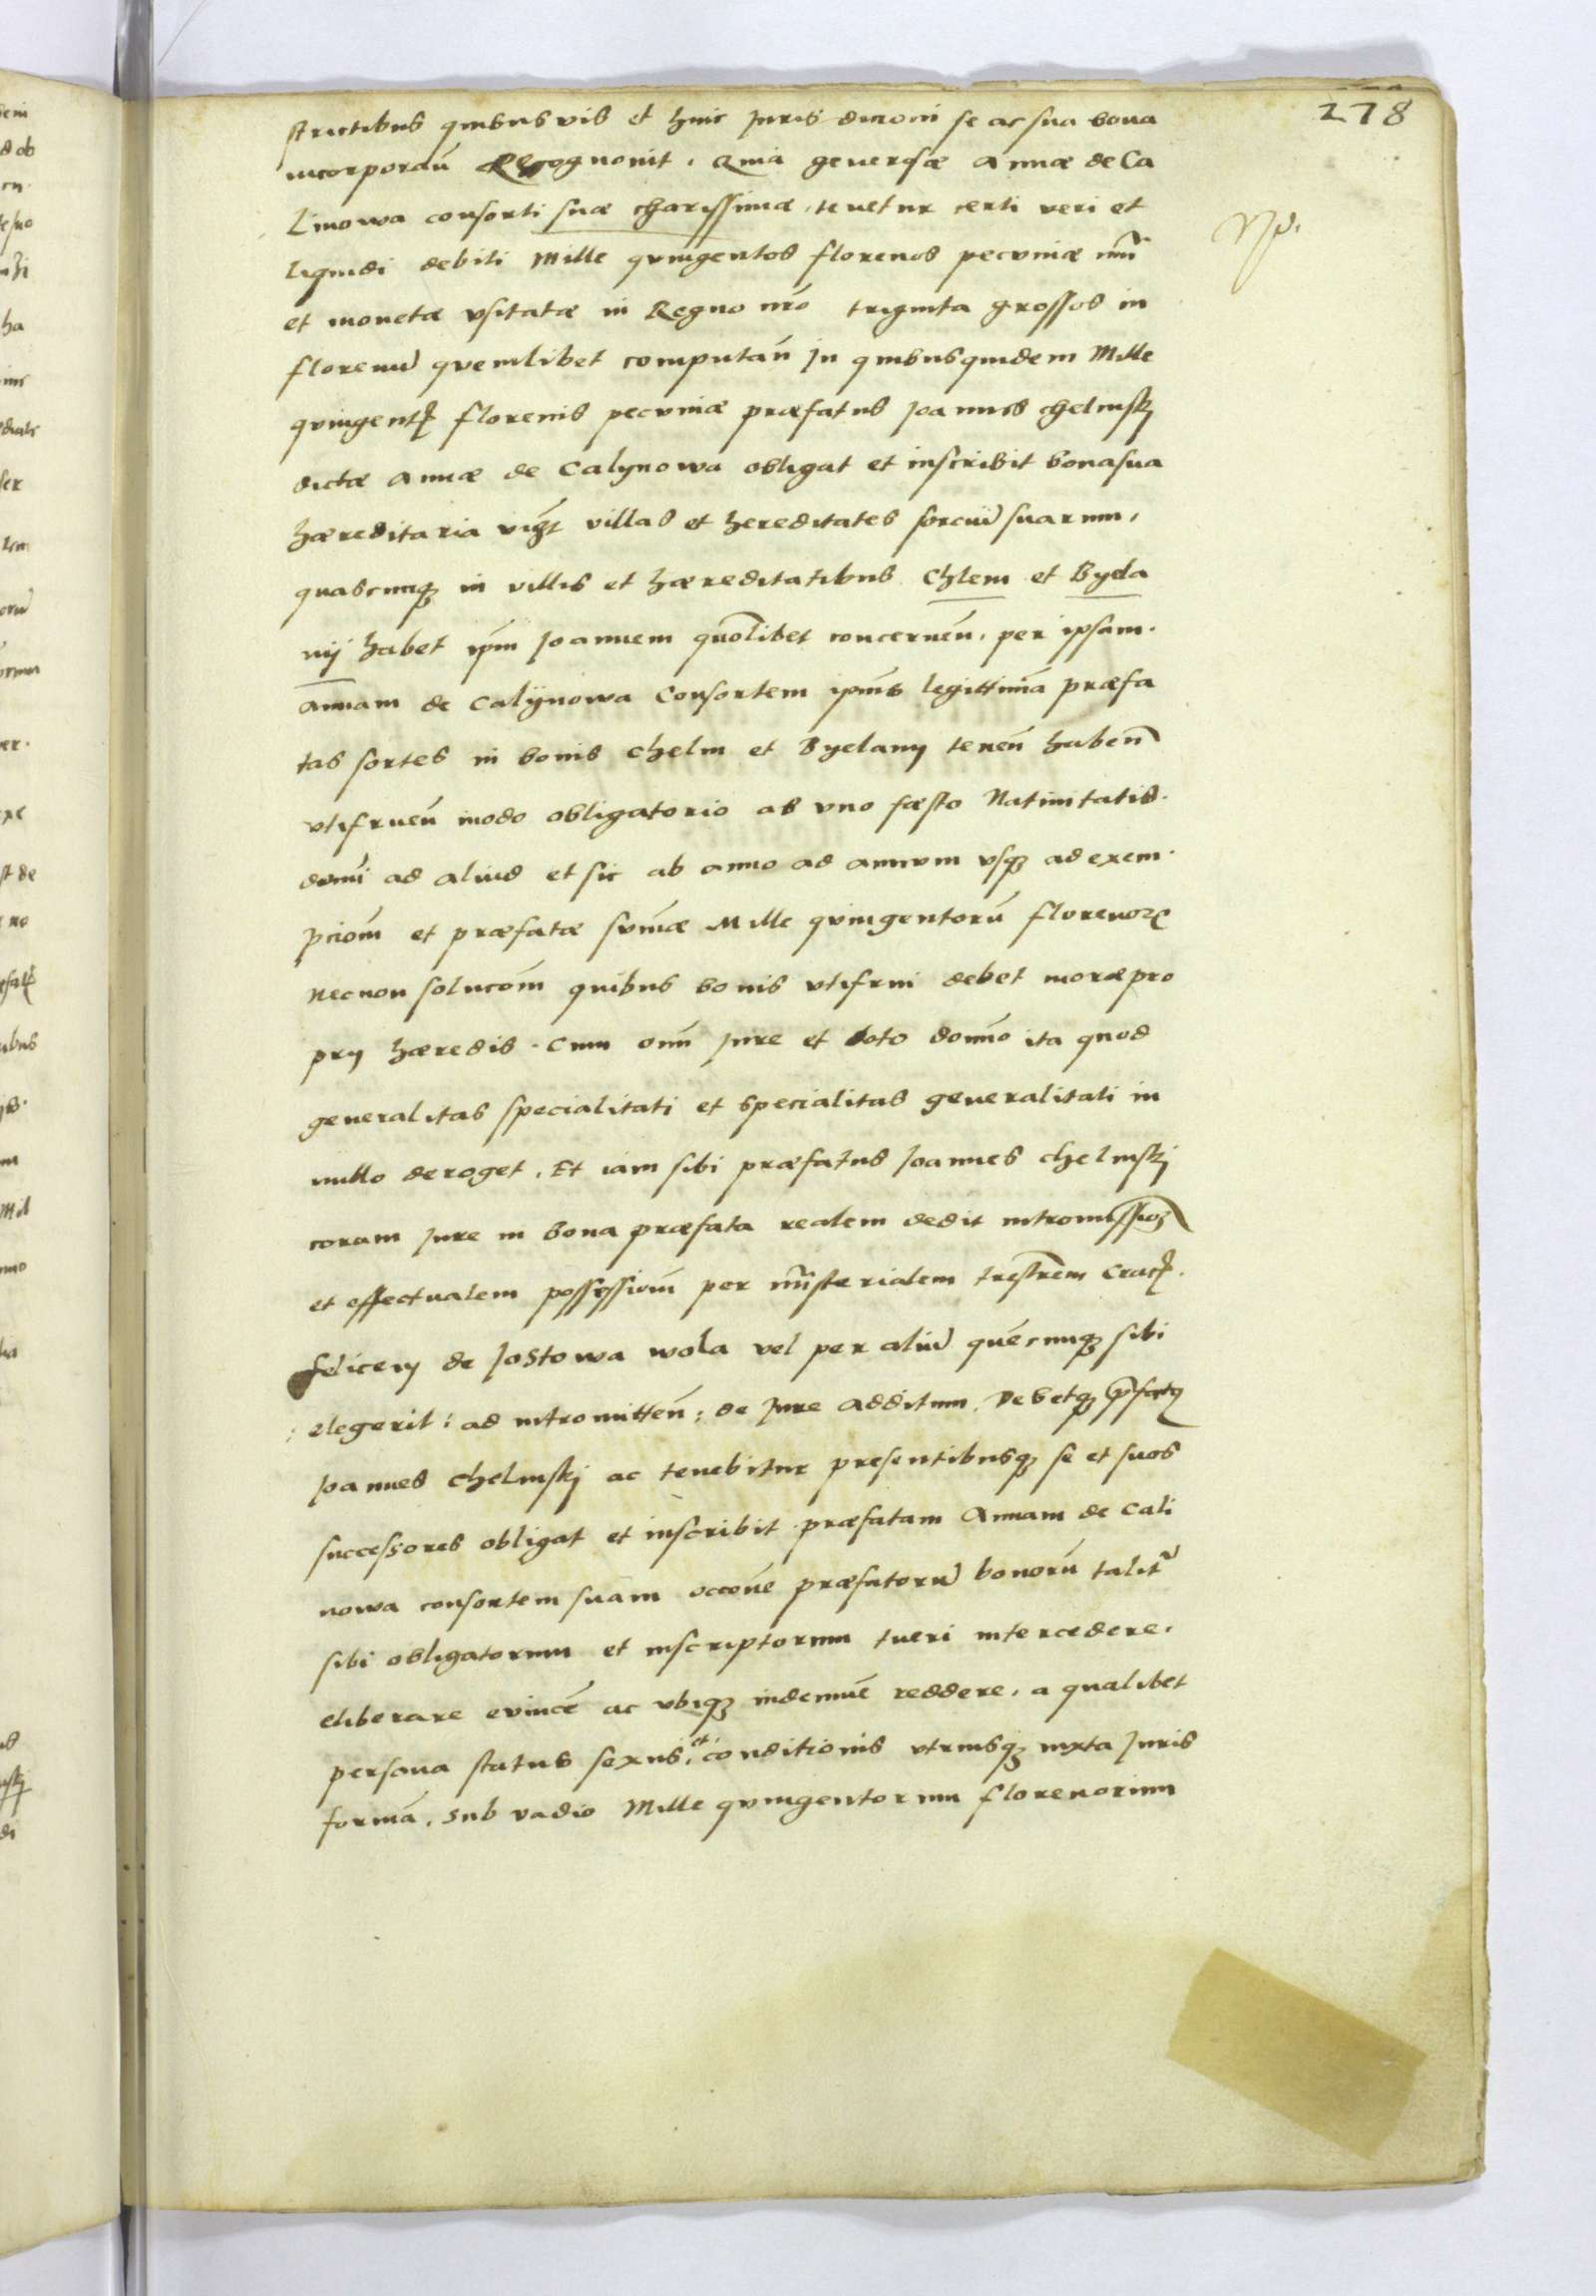 278
strictibus quibusvis et huic Juris dicioni se ac sua bona
incorporan̄ Recognouit. Quia generosæ Annæ de Ca
linowa consorti suæ charissimæ, tenetur certi veri et
liquidi debiti Mille quingentos florenos pecuniæ nr̄i
et monetæ vsitatæ in Regno nr̄o triginta grossos in
florenū quemlibet computan̄ Jn quibusquidem Mille
quingent florenis pecuniæ præfatus Joannes chelmskj
dictæ Annæ de Calynowa obligat et inscribit bona sua
hæreditaria vigt villas et hereditates sorciū suarum,
quascunqꝫ in villis et hæreditatibus Chlem et Byela
nij habet ip̄m Joannem quōlibet concernen̄, per ipsam.
Annam de Calijnowa Consortem ip̄ius legittimā præfa
tas sortes in bonis chelm et Byelany tenen̄ haben̄
vtifruen̄ modo obligatorio ab vno fæsto Natiuitatis.
domī ad aliud et sic ab anno ad annum vsqꝫ ad exem.
pciom̄ et præfatæ sum̄æ Mille quingentorū florenoꝝ
necnon solucom̄ quibus bonis vtifrui debet more pro
prij hæredis. Cum om̄i Jure et toto domīo ita quod
generalitas specialitati et specialitas generalitati in
nullo deroget. Et iam sibi præfatus Joannes chelmskj
coram Jure in bona præfata realem dedit intromissioꝫ
et effectualem possessiom̄ per mīisterialem trestrem̄ Crac.
felicem de Jostowa wola vel per aliū quēcunqꝫ sibi
: elegerit: ad intromitten̄: de Jure additum. Debetqꝫ præfatꝰ
Joannes Chelmskj ac tenebitur presentibusqꝫ se et suos
successores obligat et inscribit præfatam Annam de Cali
nowa consortem suam occoīne præfatorū bonorū talit̄
sibi obligatorum et inscriptorum tueri intercedere.
eliberare evincē ac vbiqꝫ indemnē reddere, a qualibet
persona status sexus, et conditionis vtriusqꝫ iuxta Juris
formā. sub vadio Mille quingentorum florenorum